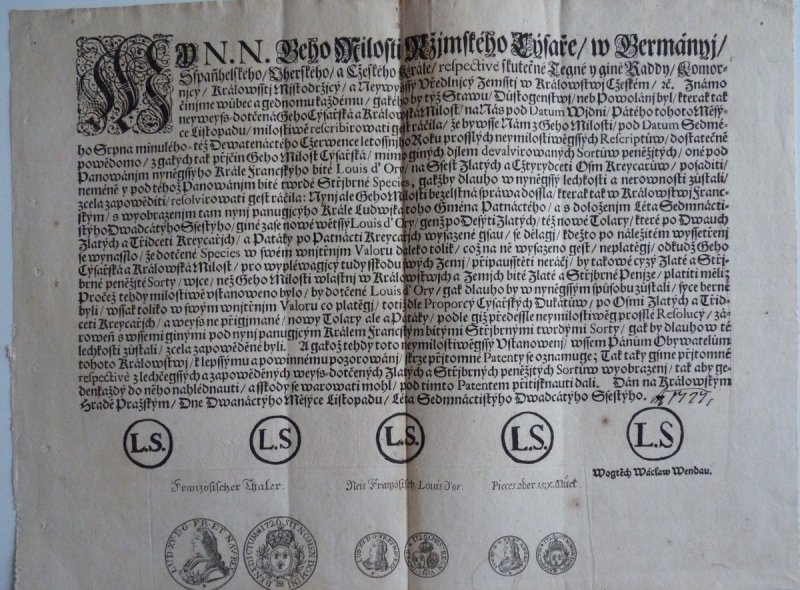 MY N. N. Geho Milosti Ržjmského Cýsaře / w Germányj /
Sspaňhelského / Vherského / a Cžeského Krále / respectivè skutečné Tegné y giné Raddy / Komor-
njcy / Králowsstj Mjstodržjcý / a Neywyšssý Vředlnjcý Zemsstj w Králowstwj Cžeském / ꝛc. Známo
činjme wůbec a gednomu každému / gakého by týž Stawu / Důstogenstwj / neb Powolánj byl / kterak tak
neyweyš-dotčená Geho Cýsařská a Králowská Milost / na Nás pod Datum Wjdni / Pátého tohoto Měsý-
ce Listopadu / milostiwě rescribirowati gest ráčila / že bywsse Nám z Geho Milosti / pod Datum Sedmé-
ho Srpna minulého - též Dewatenáctého Cžerwence letossnjho Roku prosslých neymilostiwěgssých Rescriptůw / dostatečně
powědomo / z gakých tak přjčin Geho Milost Cýsařská / mimo giných dílem devalvirowaných Sortůw peněžitých / oné pod
Panowánjm nyněgssýho Krále Francýského bité Louis d' Ory / na Ssest Zlatých a Cžtyrydceti Osm Kreycarůw / posaditi /
neméně y pod téhož Panowánjm bité twrdé Střjbrné Species, gakžby dlauho w nyněgssý lechkosti a nerownosti zůstali /
zcela zapowěditi / resolvirowati gest ráčila: Nynj ale Geho Milosti bezelstná spráwa dossla / kterak tak w Králowstwj Franc-
ským / s wyobrazenjm tam nynj panugjcýho Krále Ludwjka toho Gména Patnáctého / a s doloženjm Léta Sedmnácti-
stýho Dwadcátýho Ssestýho / giné zase nowé wětssý Louis d' Ory / genž po Desýti Zlatých / též nowé Tolary / které po Dwauch
Zlatých a Třidceti Kreycařjch / a Patáky po Patnácti Kreycařjch wysazené gsau / se dělagj / kdežto po náležitém wyssetřenj
se wynasslo / že dotčené Species w swém wnjtřnjm Valoru daleko tolik / což na ně wysazeno gest / neplatěgj / odkudž Geho
Cýsařská a Králowská Milost / pro wyplěwagjcý tudy sskodu swých Zemj / připausstěti neráčj / by takowé cyzý Zlaté a Střj-
brné peněžité Sorty / wjce / než Geho Milosti wlastnj w Králowstwjch a Zemjch bité Zlaté a Střjbrné Penjze / platiti měli:
Pročež tehdy milostiwě vstanoweno bylo / by dotčené Louis d' Ory / gak dlauho by w nyněgssým spůsobu zůstali / sýce berné
byli / wssak toliko w swým wnjtřnjm Valoru co platěgj / totiž dle Proporcý Cýsařských Dukátůw / po Osmi Zlatých a Třid-
ceti Kreycařjch / a weyss ne přigjmané / nowý Tolary ale a Patáky / podle giž předessle neymilostiwěgi prosslé Resolucý / zá-
roweň s wssemi ginými pod nynj panugjcým Králem Francským bitými Střjbrnými twrdými Sorty / gak by dlauho w té
lechkosti zůstali / zcela zapowěděné byli. A gakož tehdy toto neymilostiwěgssý Vstanowenj / wssem Pánům Obywatelům
tohoto Králowstwj / k lepssýmu a powinnému pozorowánj / skrze přjtomné Patenty se oznamuge; Tak taky gsme přjtomně
respectivè z lechčegssých a zapowěděných weyš-dotčených Zlatých a Střjbrných peněžjtých Sortůw wyobrazenj / tak aby ge-
denkaždý do něho nahlédnauti / a sskody se warowati mohl / pod tjmto Patentem přitisknauti dali. Dán na Králowským
Hradě Pražským / Dne Dwanáctýho Měsýce Listopadu / Léta Sedmnáctistýho Dwadcátýho Ssestýho.
L.S. L.S L.S. L.S. L.S
Wogtěch Wáclaw Wendau.
Französischer Thaler. Neü Französisch Louis d'or. Pieces oder 15x. Stück.
LUD XV D G FR ET NAV REX 1726 SIT NOMEN DOMINI BENEDICTUM